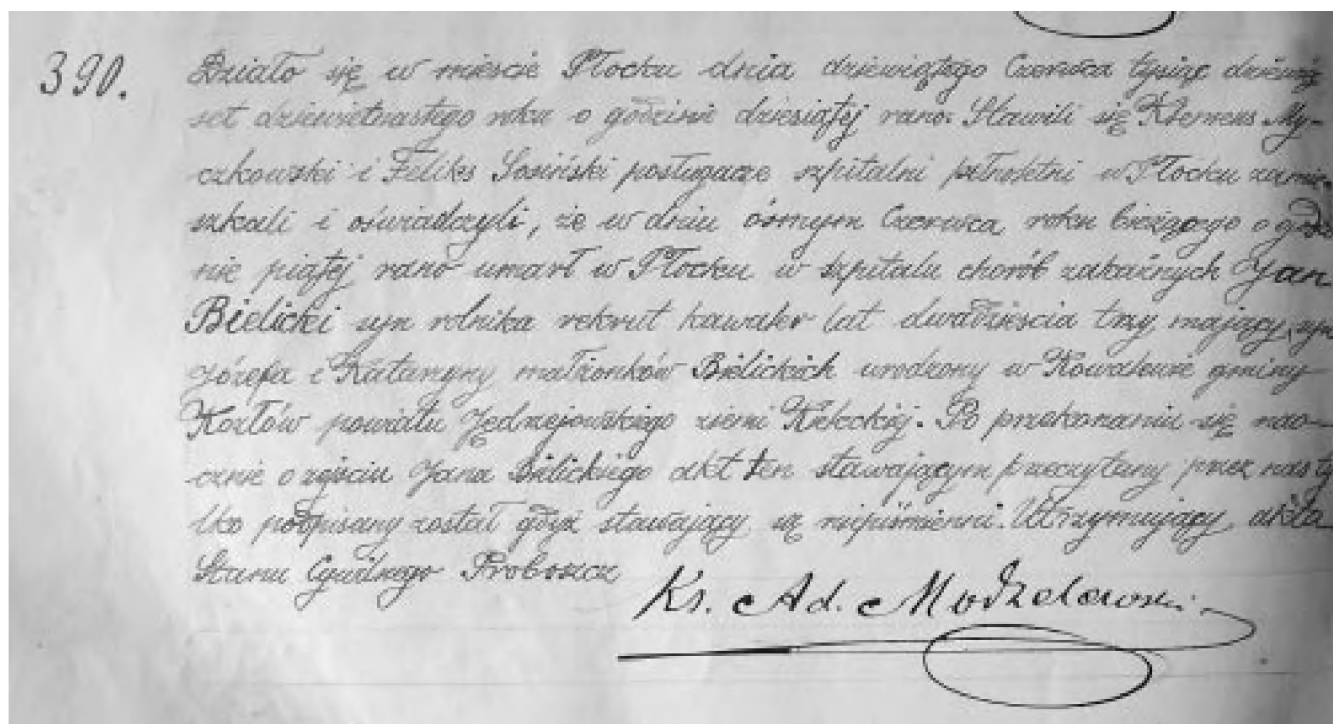 390. Działo się w mieście Płocku dnia dziewiątego Czerwca tysiąc dziewięć
set dziewietnastego roku o godzinie dziesiątej rano. Stawili się Klemens My-
czkowski i Feliks Sosiński posługacze szpitalni pełnoletni w Płocku zamie-
szkali i oświadczyli, że w dniu ósmym Czerwca roku bieżącego o godzi
nie piątej rano umarł w Płocku w szpitalu chorób zakaźnych Jan
Bielicki syn rolnika rekrut kawaler lat dwadzieścia trzy mający, syn
Józefa i Katarzyny małżonków Bielickich urodzony w gminy
Kozłów powiatu Jędrzejowskiego ziemi Kieleckiej. Po przekonaniu się nao-
cznie o zejściu Jana Bielickiego akt ten stawającym przeczytany przez nas ty
lko podpisany został gdyż stawający są niepiśmienni. Utrzymujący akta
Stanu Cywilnego Proboszcz
Ks. Ad. Modzelewski